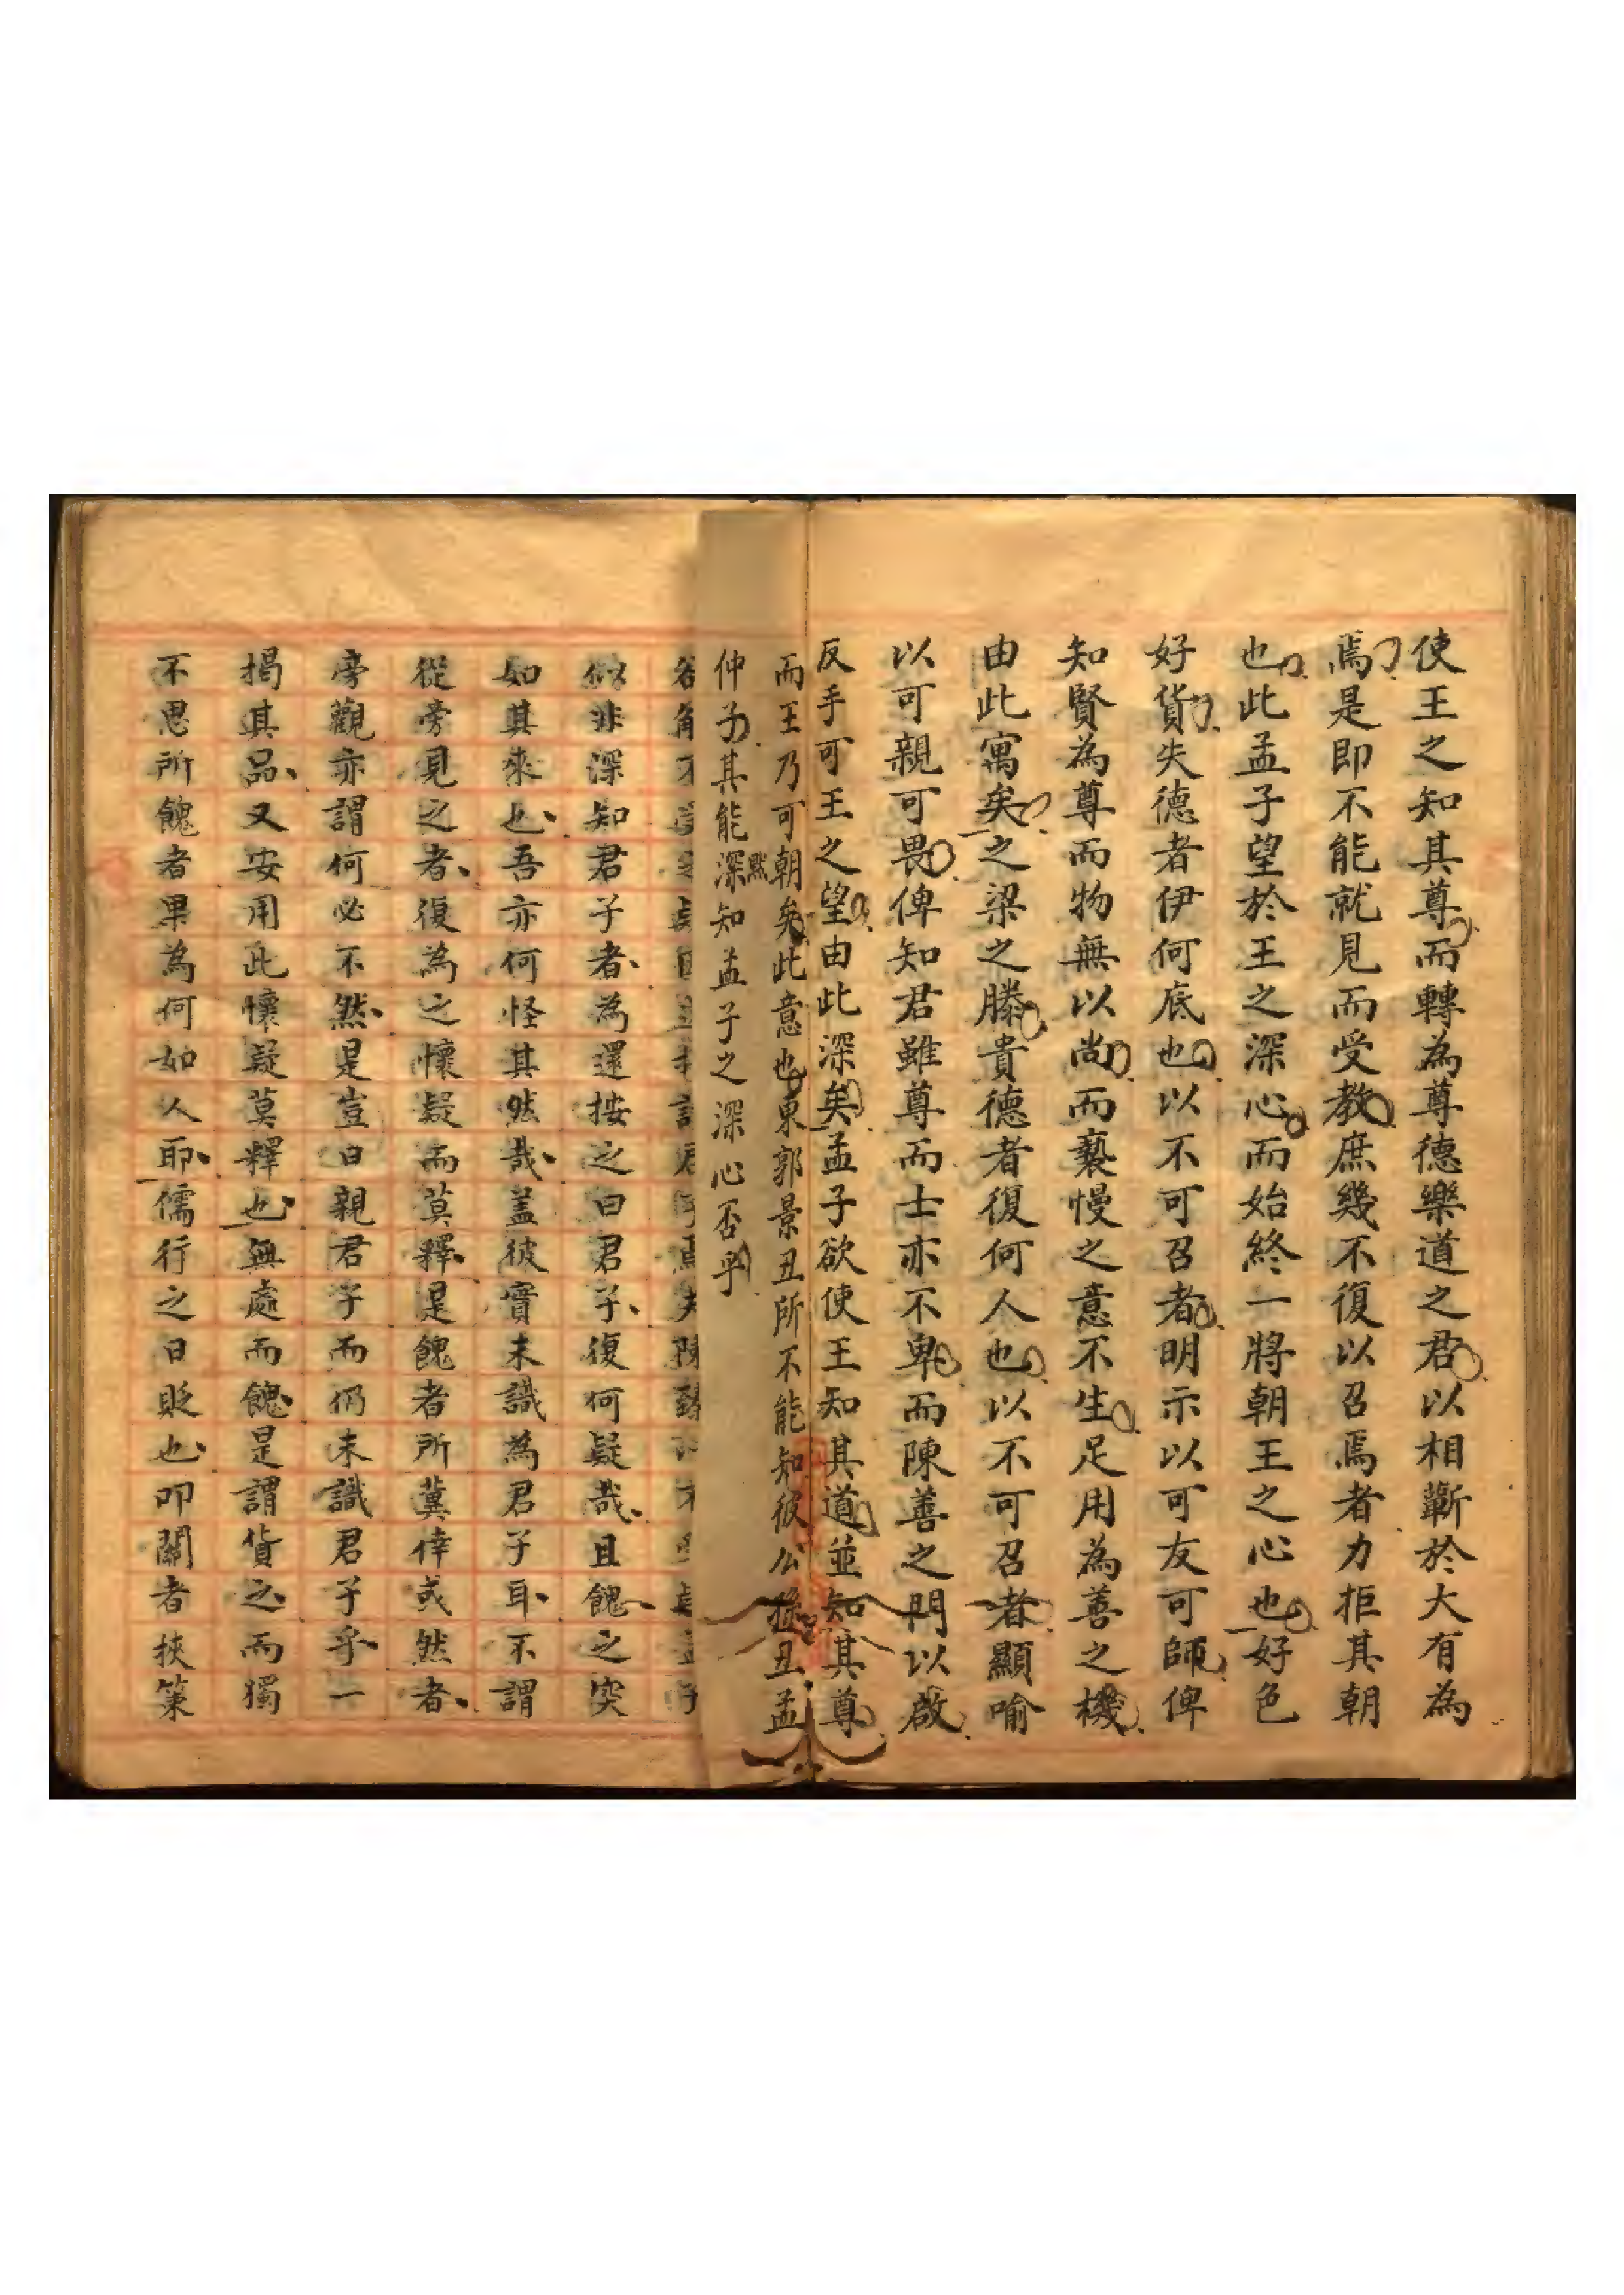 使王之知其尊而轉為尊德樂道之君以相蘄於大有為
焉是即不能就見而受教庶幾不復以召焉者力拒其朝
也此孟子望於王之深心而始終一將朝王之心也好色
好貨失德者伊何底也以不可召者明示以可友可師俾
知賢為尊而物無以尚而褻慢之意不生足用為善之機
由此寓矣之梁之滕貴德者復何人也以不可召者顯喻
以可親可畏俾知君雖尊而士亦不卑而陳善之門以啟
反手可王之望由此深矣孟子欲使王知其道並知其尊
而王乃可朝矣此意也東郭景丑所不能知彼公孫丑孟
仲子其能深默知孟子之深心否乎
似非深知君子者為還按之曰君子復何疑哉且餽之突
如其來也吾亦何怪其然哉盖彼實未識為君子耳不謂
從旁見之者復為之懷疑而莫釋是餽者所冀倖或然者
旁觀亦謂何必不然是豈曰親君子而仍未識君子乎一
揭其品又安用此懷疑莫釋也無處而餽是謂貨之而獨
不思所餽者果為何如人耶儒行之日貶也叩關者挾策